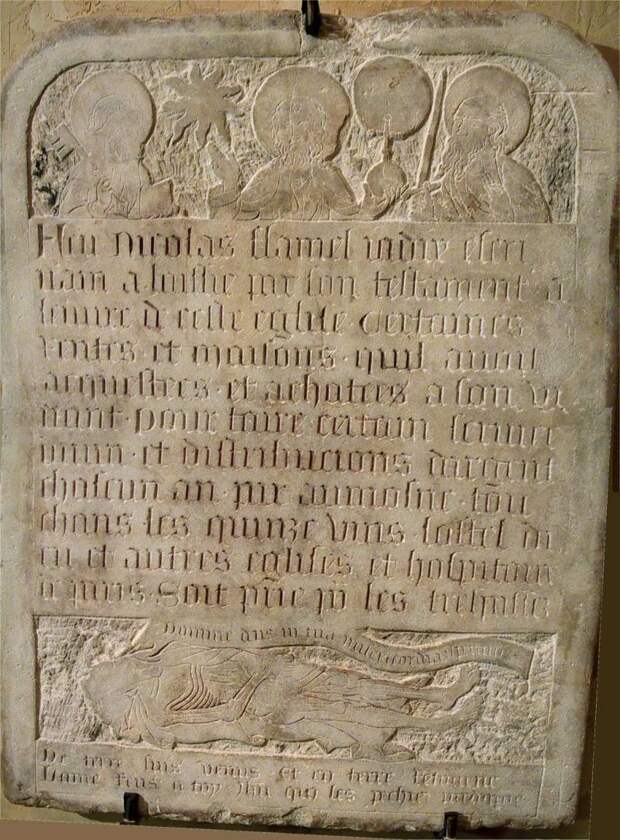 Feu nicolas flamel iadis escri
uain a laissie par son testament a
leuure de ceste eglise certaines
rentes et maisons quil auoit
acquestees et achatees a son vi
uant pour faire certain seruice
diuin et distribucions dargent
chascun an par aumosne tou
chans les quinze vins lostel di
eu et autres eglises et hospitaux
de paris Soit prie por les trespasses
Domine deus in tua misericordia speraui
De terre suis venus et en terre retourne
Lame rens a toy ihu qui les pechiez pardonne